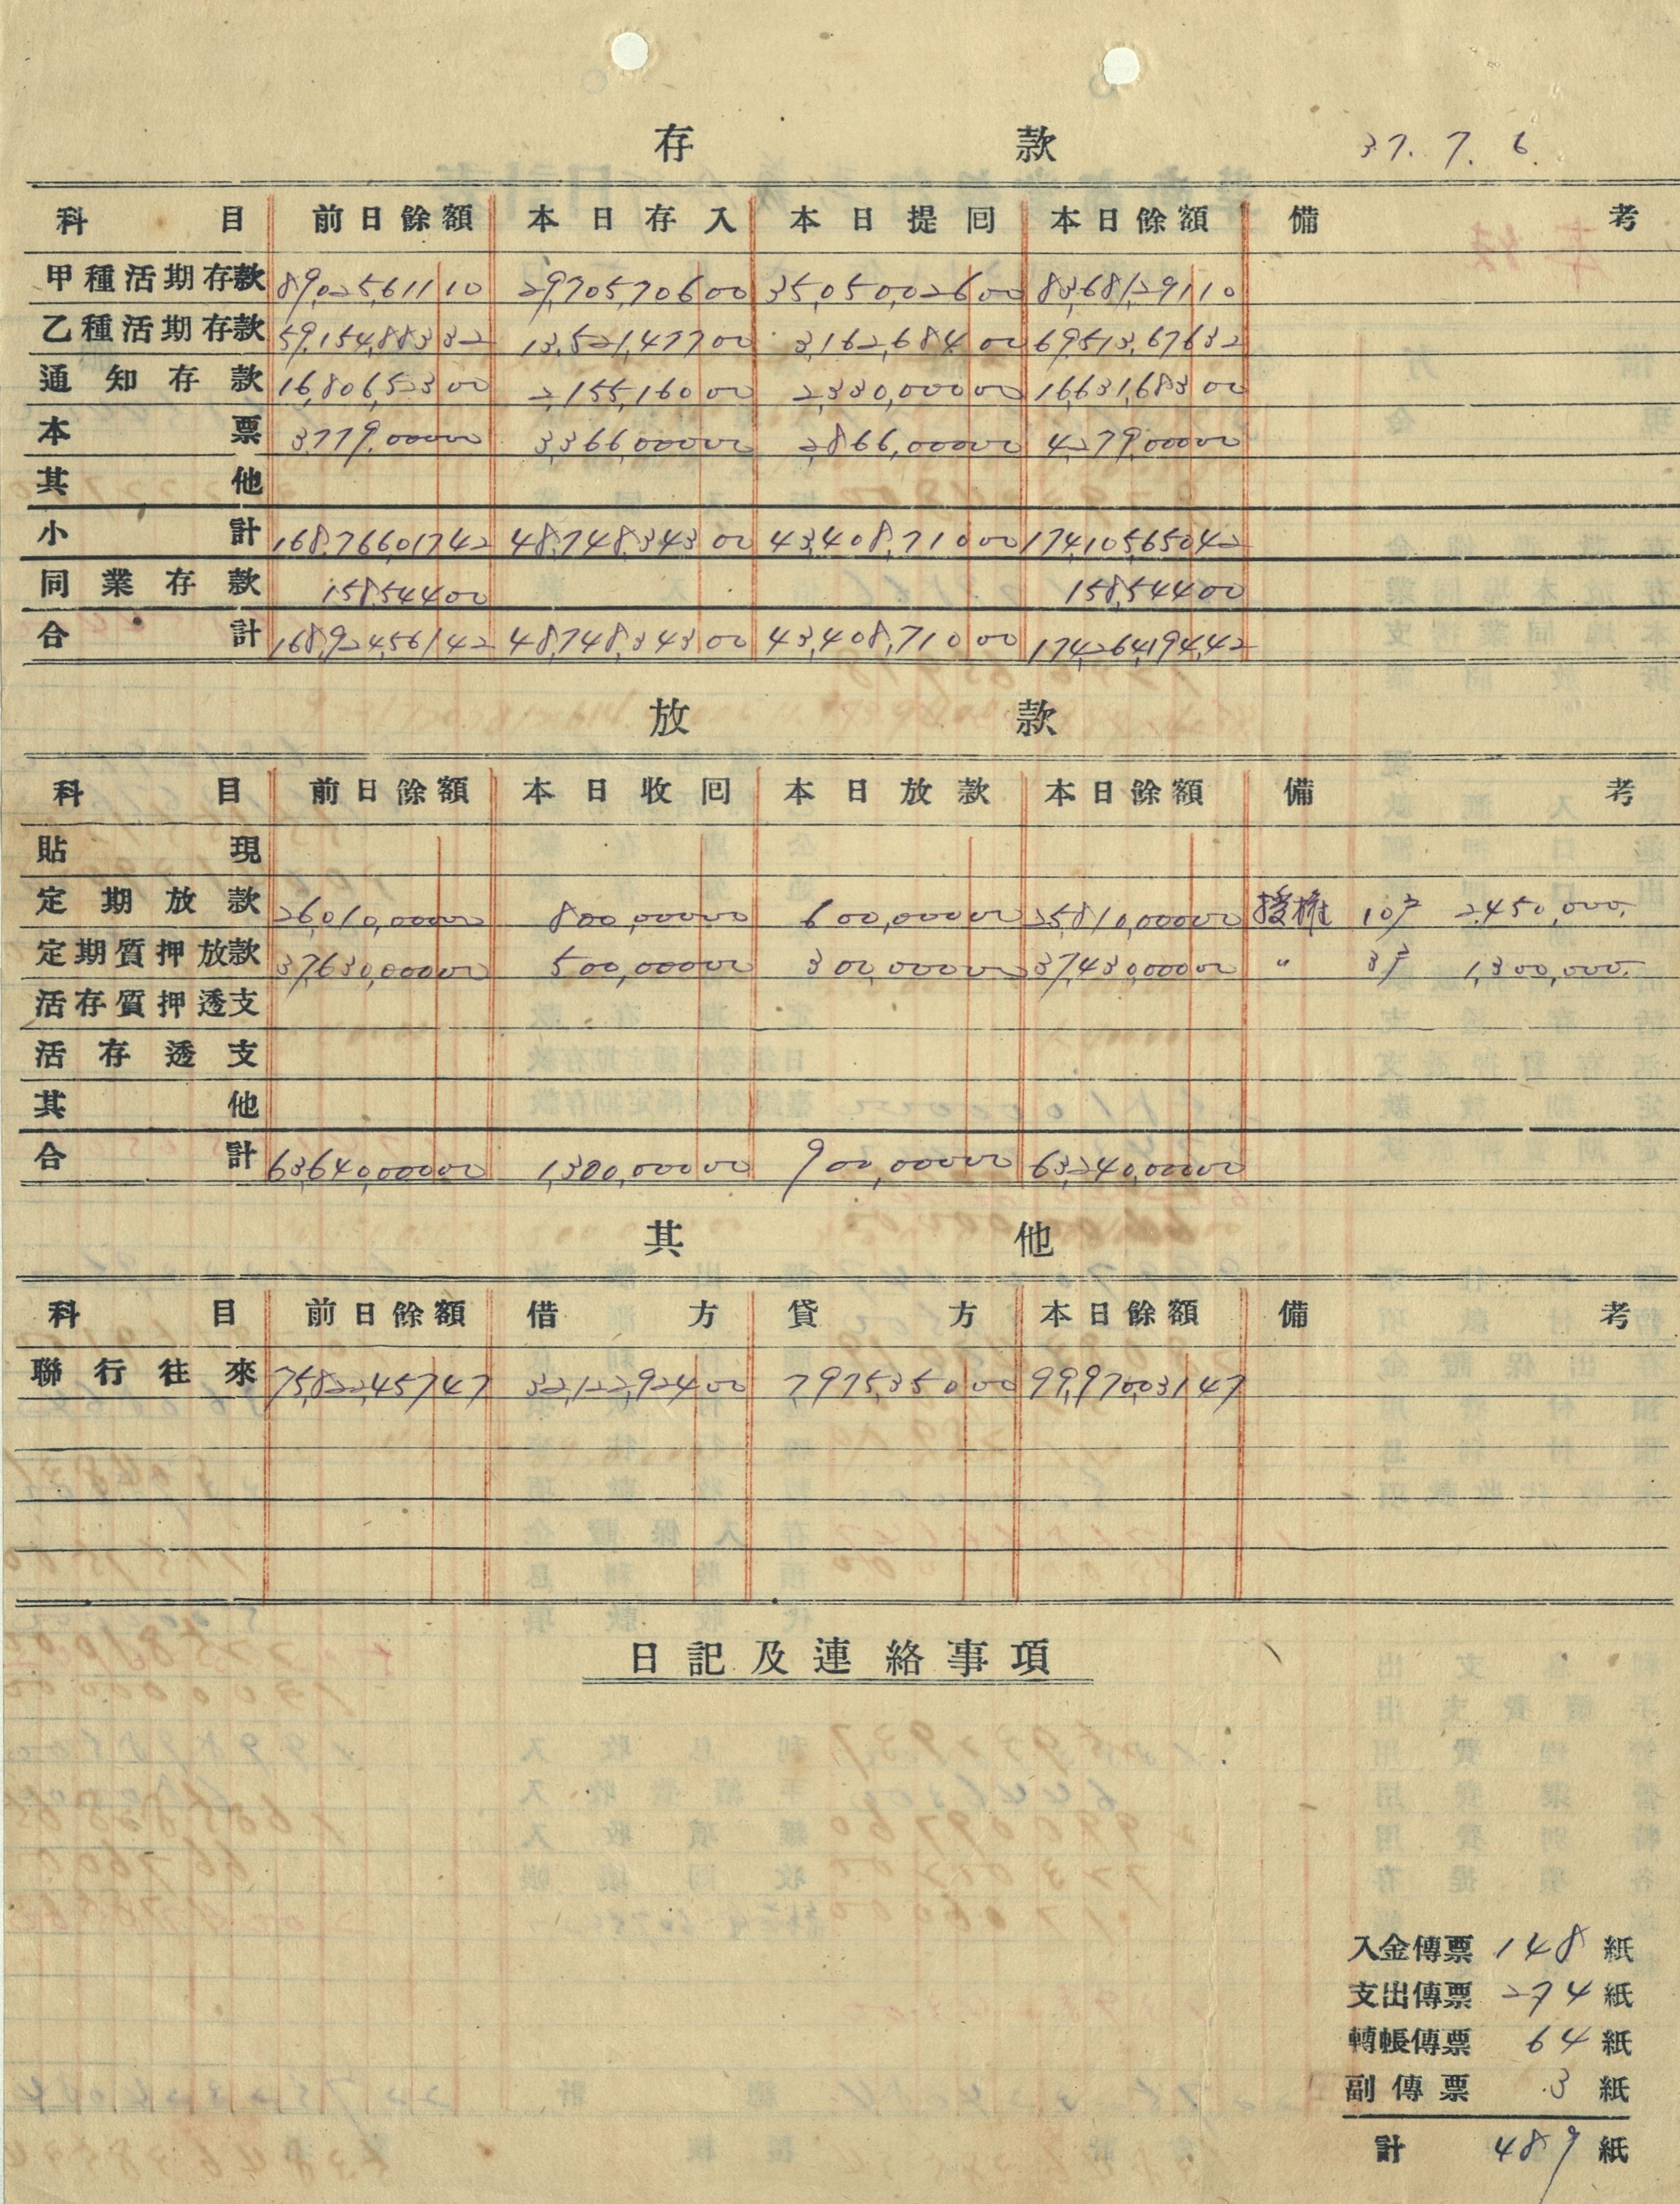 存款 37.7.6.
科目 前日餘額 本日存入 本日提囘 本日餘額 備考
甲種活期存款 89,025,611 10 29,705,706 00 35,050,026 00 83,681,291 10
乙種活期存款 59,154,883 32 13,521,477 00 3,162,684 00 69,513,676 32
通知存款 16,806,523 00 2,155,160 00 2,330,000 00 16,631,683 00
本票 3,779,000 00 3,366,000 00 2,866,000 00 4,279,000 00
其他
小計 168,766,017 42 48,748,343 00 43,408,710 00 174,105,650 42
同業存款 158,544 00 158,544 00
合計 168,924,561 42 48,748,343 00 43,408,710 00 174,264,194 42
放款
科目 前日餘額 本日收囘 本日放款 本日餘額 備考
貼現
定期放款 26,010,000 00 800,000 00 600,000 00 25,810,000 00 授權 10戶 2,450,000.
定期質押放款 37,630,000 00 500,000 00 300,000 00 37,430,000 00 〃 3戶 1,300,000.
活存質押透支
活存透支
其他
合計 63,640,000 00 1,300,000 00 900,000 00 63,240,000 00
其他
科目 前日餘額 借方 貸方 本日餘額 備考
聯行往來 75,822,457 47 32,122,924 00 7,975,350 00 99,970,031 47
日記及連絡事項
入金傳票 148 紙
支出傳票 274 紙
轉帳傳票 64 紙
副傳票 3 紙
計 489 紙